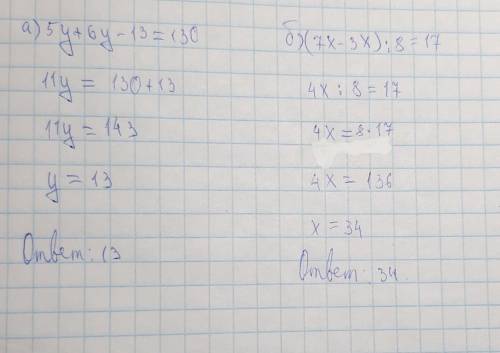 а) 5y+6y-13=130
11y = 130+13
11y = 143
y = 13
Ответ: 13
б) (7x-3x):8=17
4x:8=17
4x=8·17
4x=136
x=34
Ответ: 34.